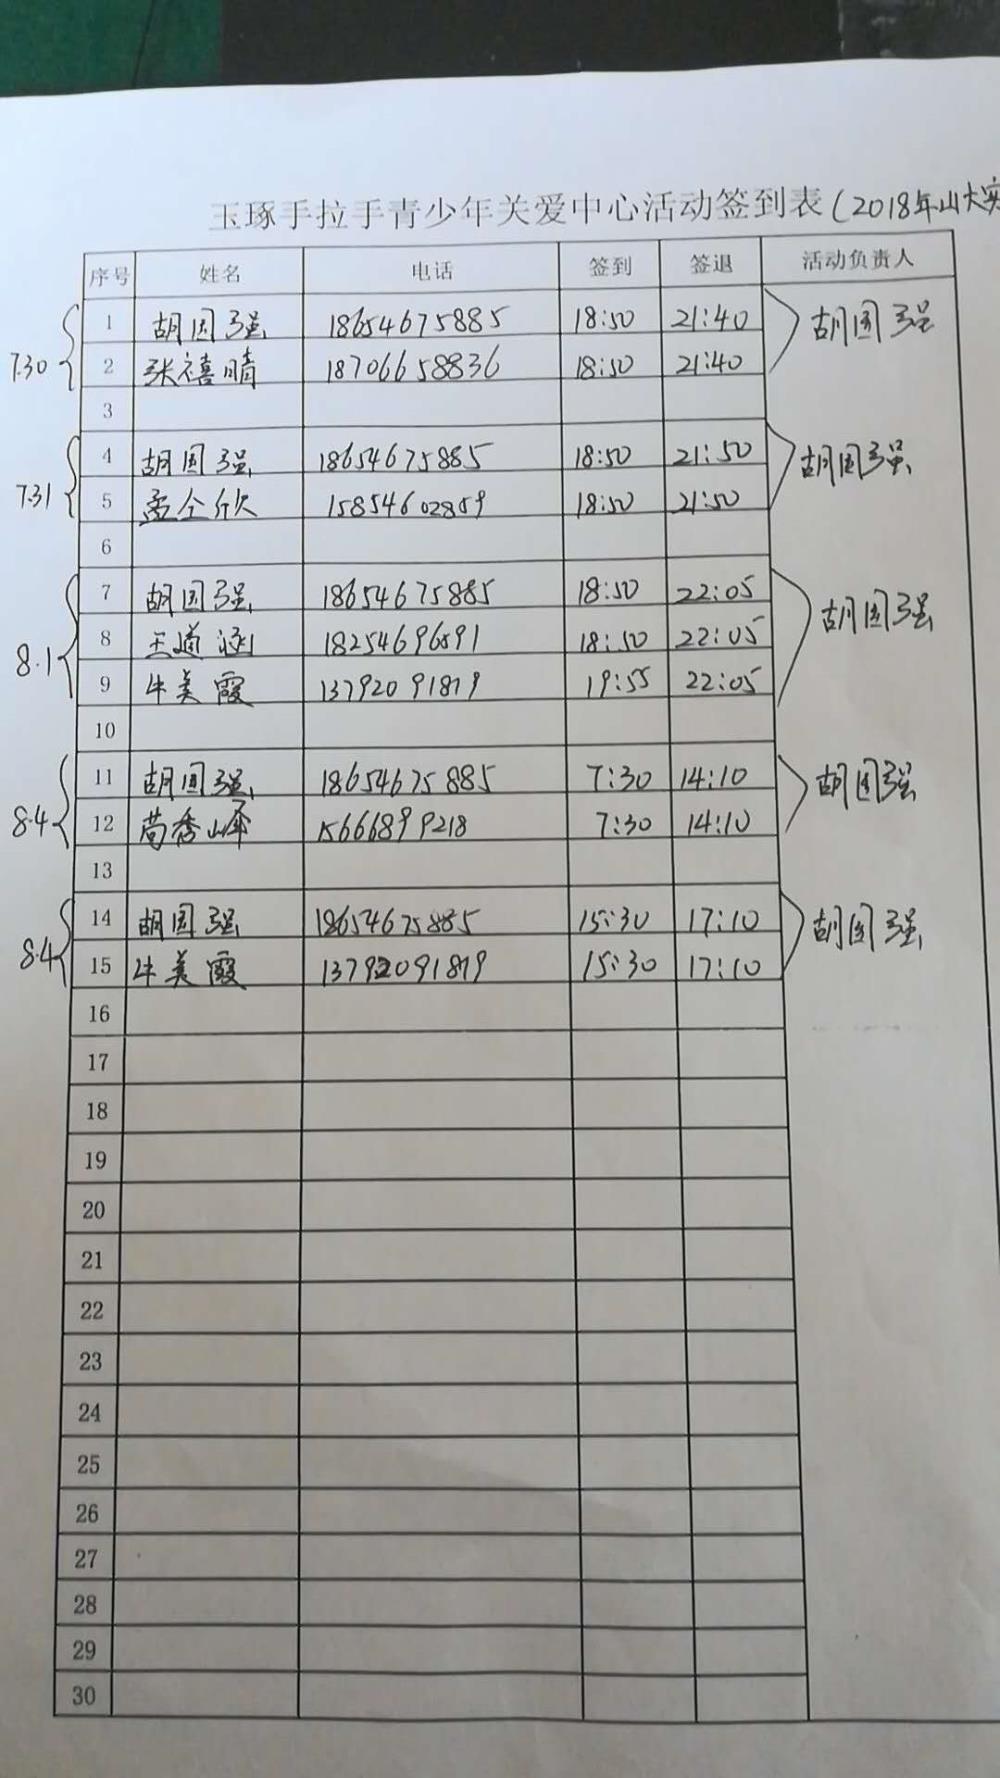 玉琢手拉手青少年关爱中心活动签到表(2018年山大实
序号 姓名 电话 签到 签退 活动负责人
7.30
1 胡国强 18654675885 18:50 21:40 胡国强
2 张禧晴 18706658836 18:50 21:40
3
7.31
4 胡国强 18654675885 18:50 21:50 胡国强
5 孟仝欣 15854602859 18:50 21:50
6
8.1
7 胡国强 18654675885 18:50 22:05 胡国强
8 王道涵 18254696591 18:50 22:05
9 牛美霞 13792091819 19:55 22:05
10
8.4
11 胡国强 18654675885 7:30 14:10 胡国强
12 苘秀峰 15666899218 7:30 14:10
13
8.4
14 胡国强 18654675885 15:30 17:10 胡国强
15 牛美霞 13792091819 15:30 17:10
16
17
18
19
20
21
22
23
24
25
26
27
28
29
30